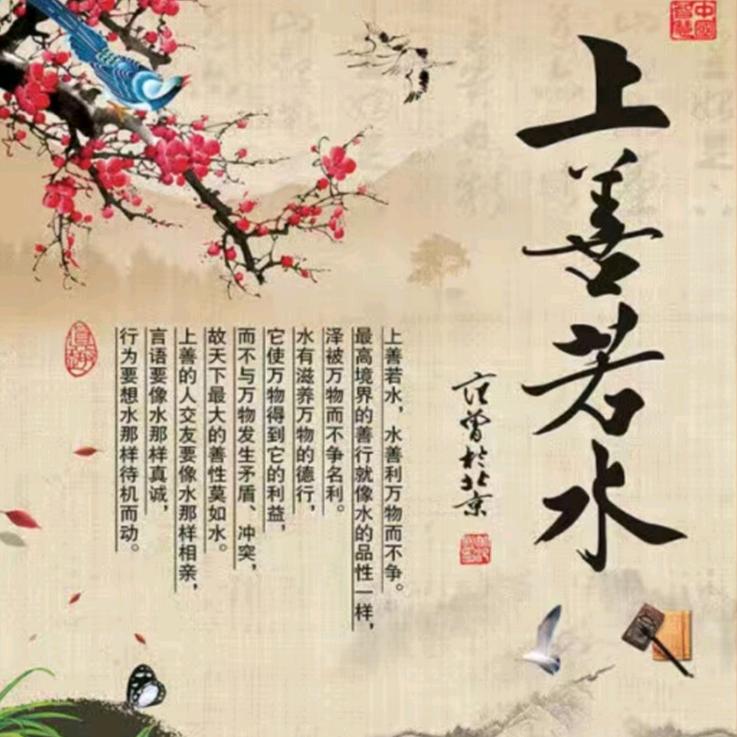 中國
智慧
上善若水
范曾於北京
上善若水，水善利万物而不争。
最高境界的善行就像水的品性一样，
泽被万物而不争名利。
水有滋养万物的德行，
它使万物得到它的利益，
而不与万物发生矛盾、冲突，
故天下最大的善性莫如水。
上善的人交友要像水那样相亲，
言语要像水那样真诚，
行为要想水那样待机而动。